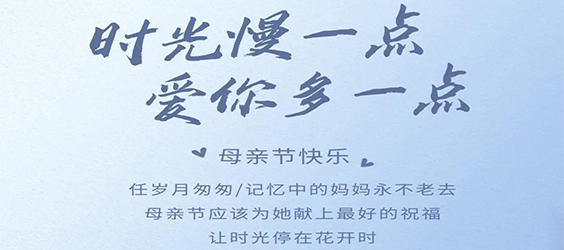 时光慢一点
爱你多一点
母亲节快乐
任岁月匆匆/记忆中的妈妈永不老去
母亲节应该为她献上最好的祝福
让时光停在花开时